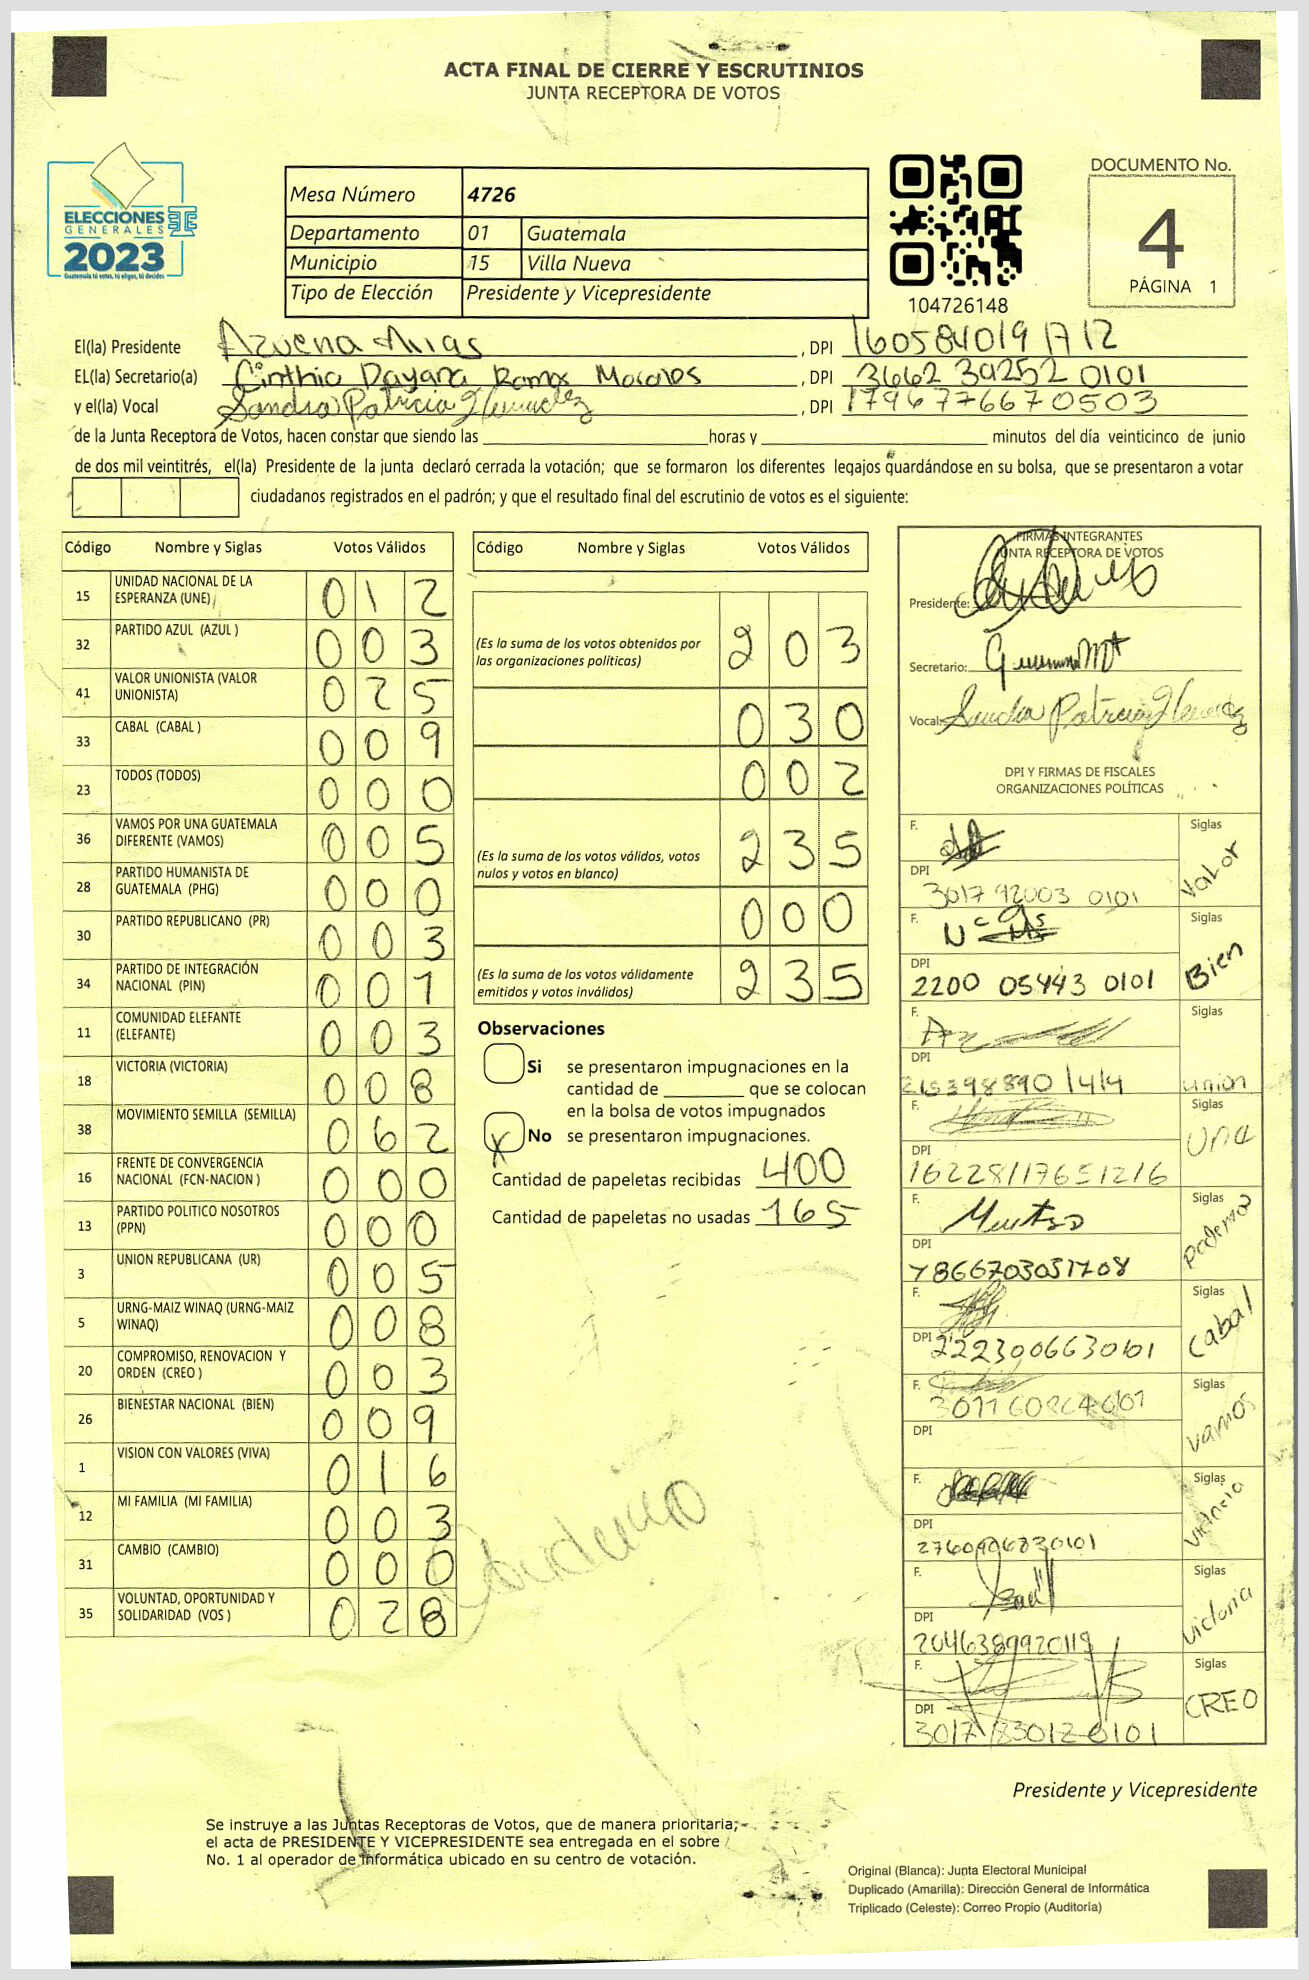 ACTA FINAL DE CIERRE Y ESCRUTINIOS
JUNTA RECEPTORA DE VOTOS
ELECCIONES
GENERALES
2023
Guatemala tú votas, tú eliges, tú decides
Mesa Número 4726
Departamento 01 Guatemala
Municipio 15 Villa Nueva
Tipo de Elección Presidente y Vicepresidente
104726148
DOCUMENTO No.
4
PÁGINA 1
El(la) Presidente Azucena Arias , DPI 1605840191712
EL(la) Secretario(a) Cinthia Dayana Ramos Morales , DPI 3662 39252 0101
y el(la) Vocal Sandra Patricia Hernandez , DPI 1796776670503
de la Junta Receptora de Votos, hacen constar que siendo las horas y minutos del día veinticinco de junio
de dos mil veintitrés, el(la) Presidente de la junta declaró cerrada la votación; que se formaron los diferentes legajos guardándose en su bolsa, que se presentaron a votar
ciudadanos registrados en el padrón; y que el resultado final del escrutinio de votos es el siguiente:
Código Nombre y Siglas Votos Válidos
15 UNIDAD NACIONAL DE LA ESPERANZA (UNE) 012
32 PARTIDO AZUL (AZUL ) 003
41 VALOR UNIONISTA (VALOR UNIONISTA) 025
33 CABAL (CABAL ) 009
23 TODOS (TODOS) 000
36 VAMOS POR UNA GUATEMALA DIFERENTE (VAMOS) 005
28 PARTIDO HUMANISTA DE GUATEMALA (PHG) 000
30 PARTIDO REPUBLICANO (PR) 003
34 PARTIDO DE INTEGRACIÓN NACIONAL (PIN) 001
11 COMUNIDAD ELEFANTE (ELEFANTE) 003
18 VICTORIA (VICTORIA) 008
38 MOVIMIENTO SEMILLA (SEMILLA) 062
16 FRENTE DE CONVERGENCIA NACIONAL (FCN-NACION ) 000
13 PARTIDO POLITICO NOSOTROS (PPN) 000
3 UNION REPUBLICANA (UR) 005
5 URNG-MAIZ WINAQ (URNG-MAIZ WINAQ) 008
20 COMPROMISO, RENOVACION Y ORDEN (CREO ) 003
26 BIENESTAR NACIONAL (BIEN) 009
1 VISION CON VALORES (VIVA) 016
12 MI FAMILIA (MI FAMILIA) 003
31 CAMBIO (CAMBIO) 000
35 VOLUNTAD, OPORTUNIDAD Y SOLIDARIDAD (VOS ) 028
Código Nombre y Siglas Votos Válidos
(Es la suma de los votos obtenidos por las organizaciones políticas) 203
030
002
(Es la suma de los votos válidos, votos nulos y votos en blanco) 235
000
(Es la suma de los votos válidamente emitidos y votos inválidos) 235
Observaciones
Si se presentaron impugnaciones en la
cantidad de que se colocan
en la bolsa de votos impugnados
X No se presentaron impugnaciones.
Cantidad de papeletas recibidas 400
Cantidad de papeletas no usadas 165
FIRMAS INTEGRANTES
JUNTA RECEPTORA DE VOTOS
Presidente:
Secretario:
Vocal: Sandra Patricia Hernandez
DPI Y FIRMAS DE FISCALES
ORGANIZACIONES POLÍTICAS
F. Siglas Valor
DPI 3017 92003 0101
F. Siglas Bien
DPI 2200 05443 0101
F. Siglas union
DPI
F. Siglas una
DPI
F. Siglas podemos
DPI
F. Siglas Cabal
DPI
F. Siglas vamos
DPI
F. Siglas victoria
DPI
F. Siglas victoria
DPI 2046389920119
F. Siglas CREO
DPI
Presidente y Vicepresidente
Se instruye a las Juntas Receptoras de Votos, que de manera prioritaria;
el acta de PRESIDENTE Y VICEPRESIDENTE sea entregada en el sobre
No. 1 al operador de Informática ubicado en su centro de votación.
Original (Blanca): Junta Electoral Municipal
Duplicado (Amarilla): Dirección General de Informática
Triplicado (Celeste): Correo Propio (Auditoría)